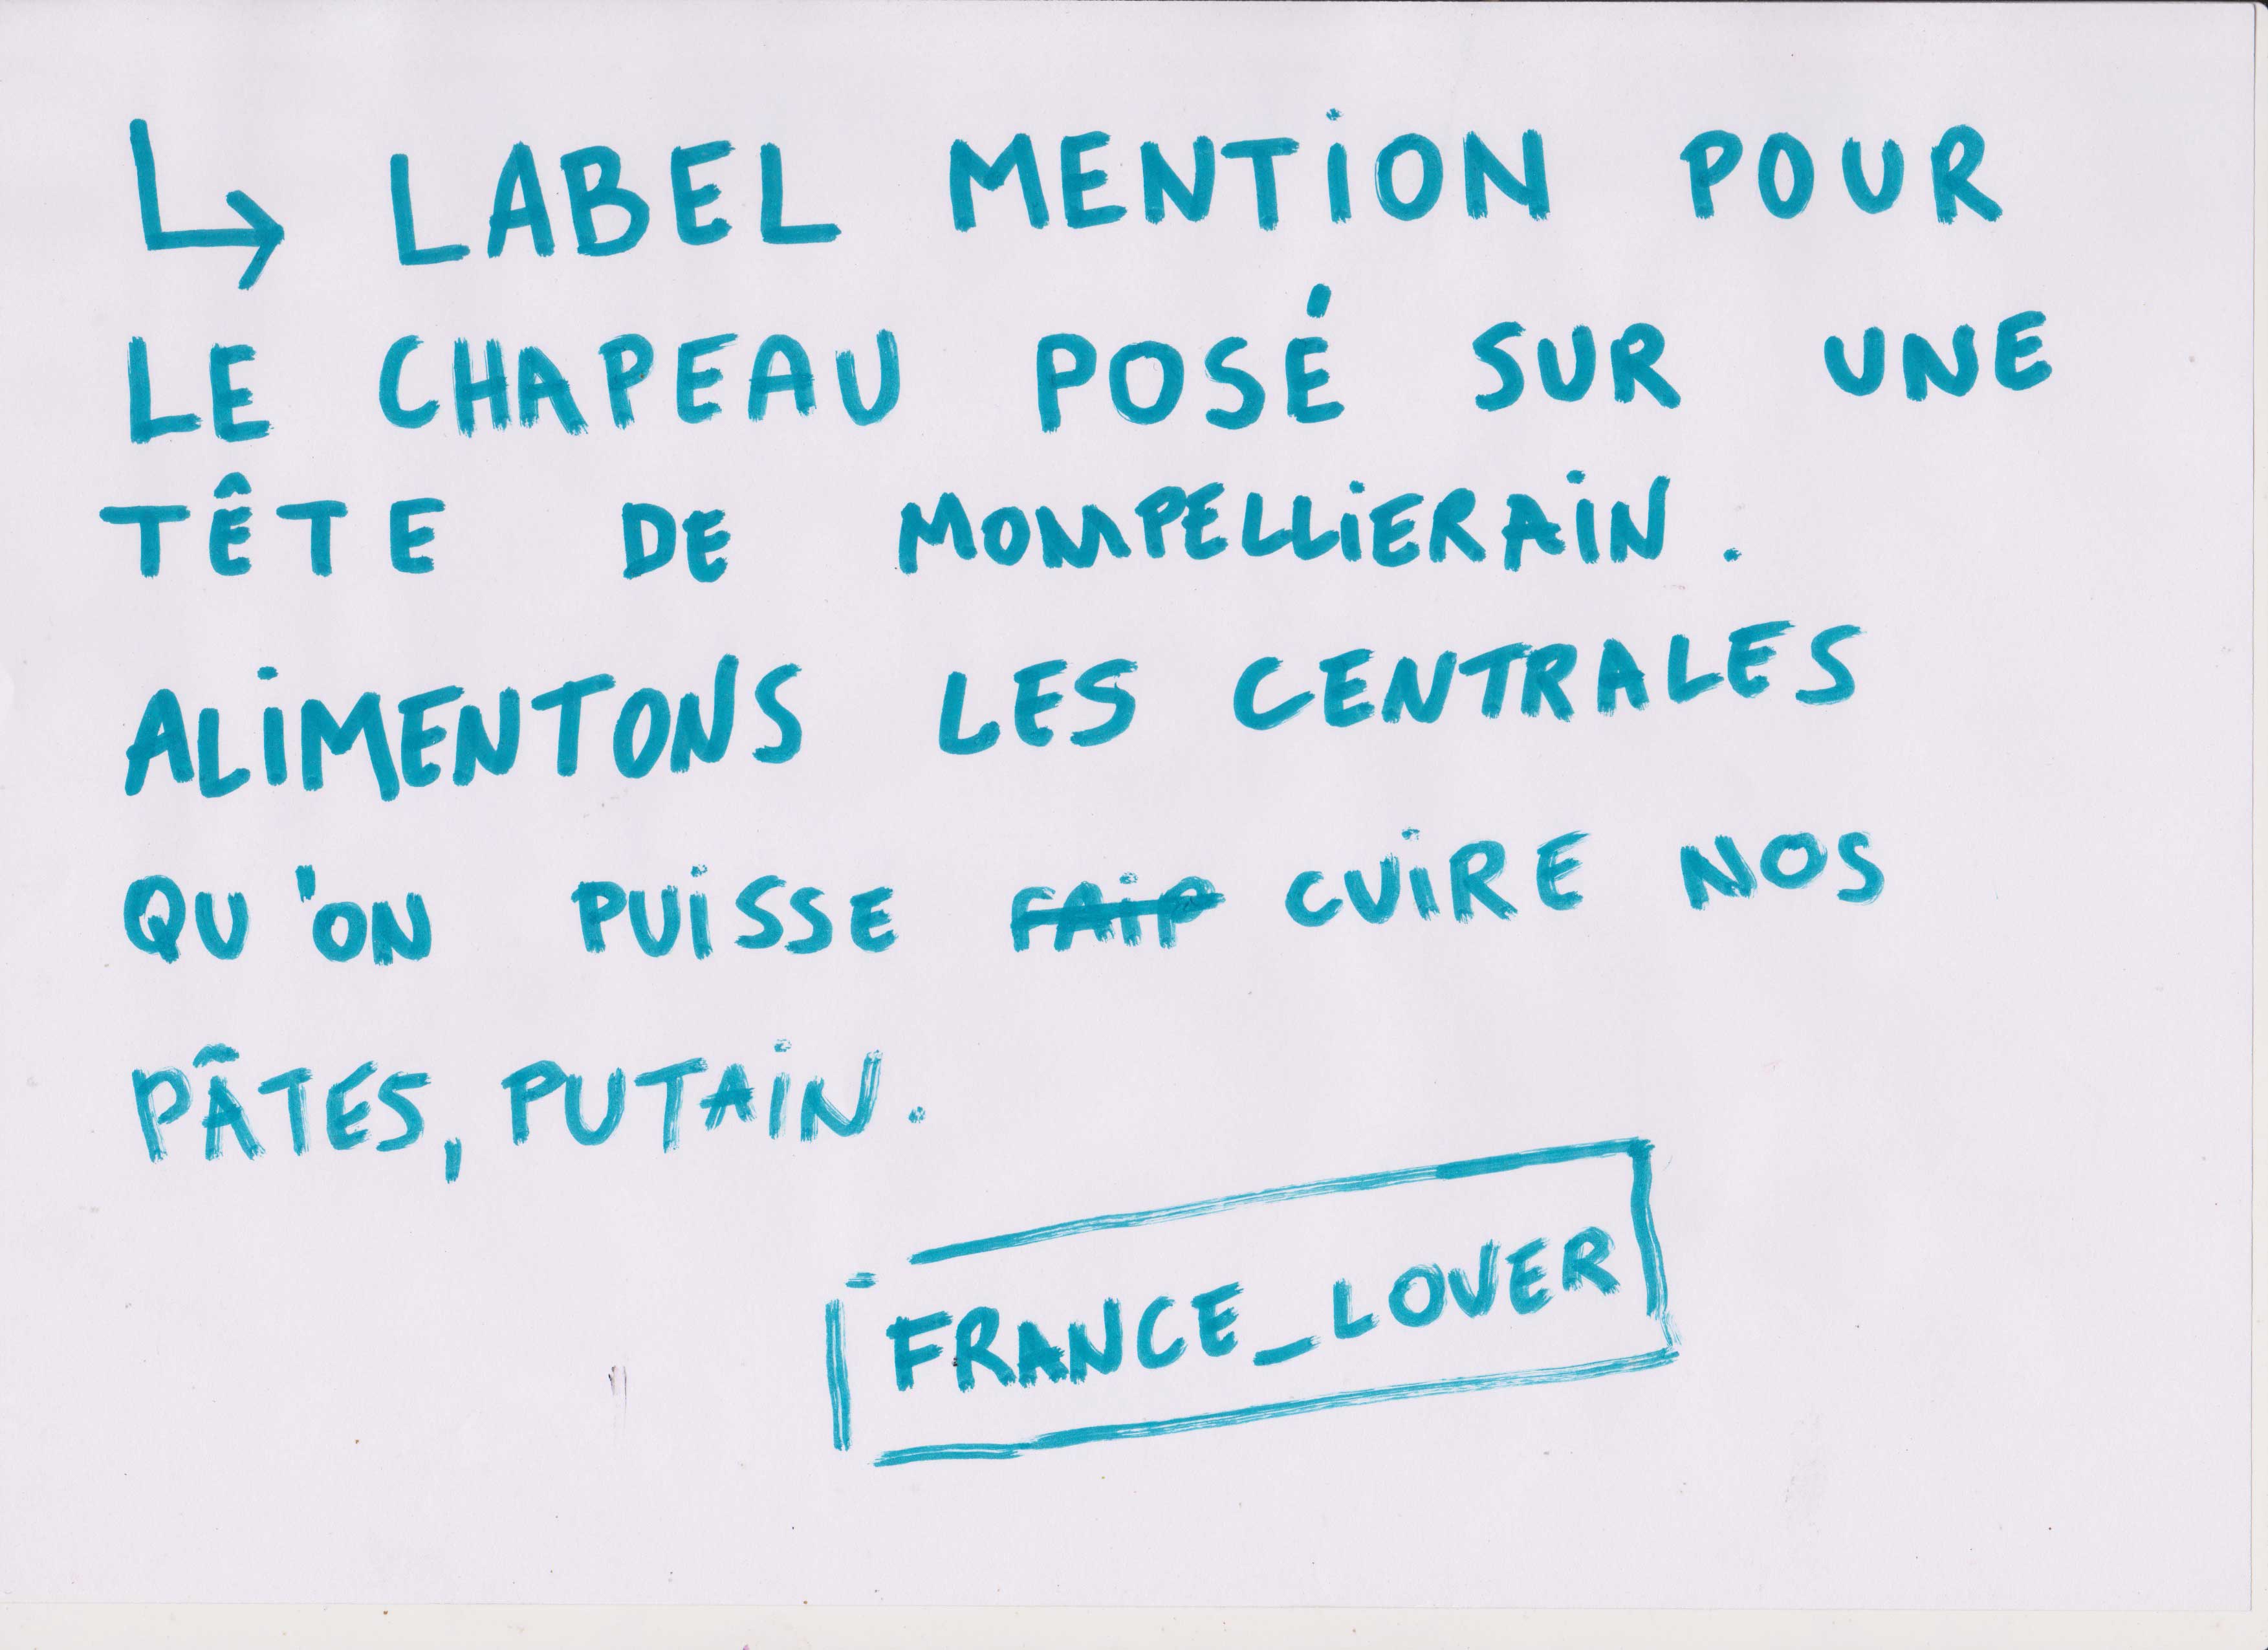 ↳ LABEL MENTION POUR
LE CHAPEAU POSÉ SUR UNE
TÊTE DE MOMPELLIERAIN.
ALIMENTONS LES CENTRALES
QU'ON PUISSE CUIRE NOS
PÂTES, PUTAIN.
FRANCE_LOVER